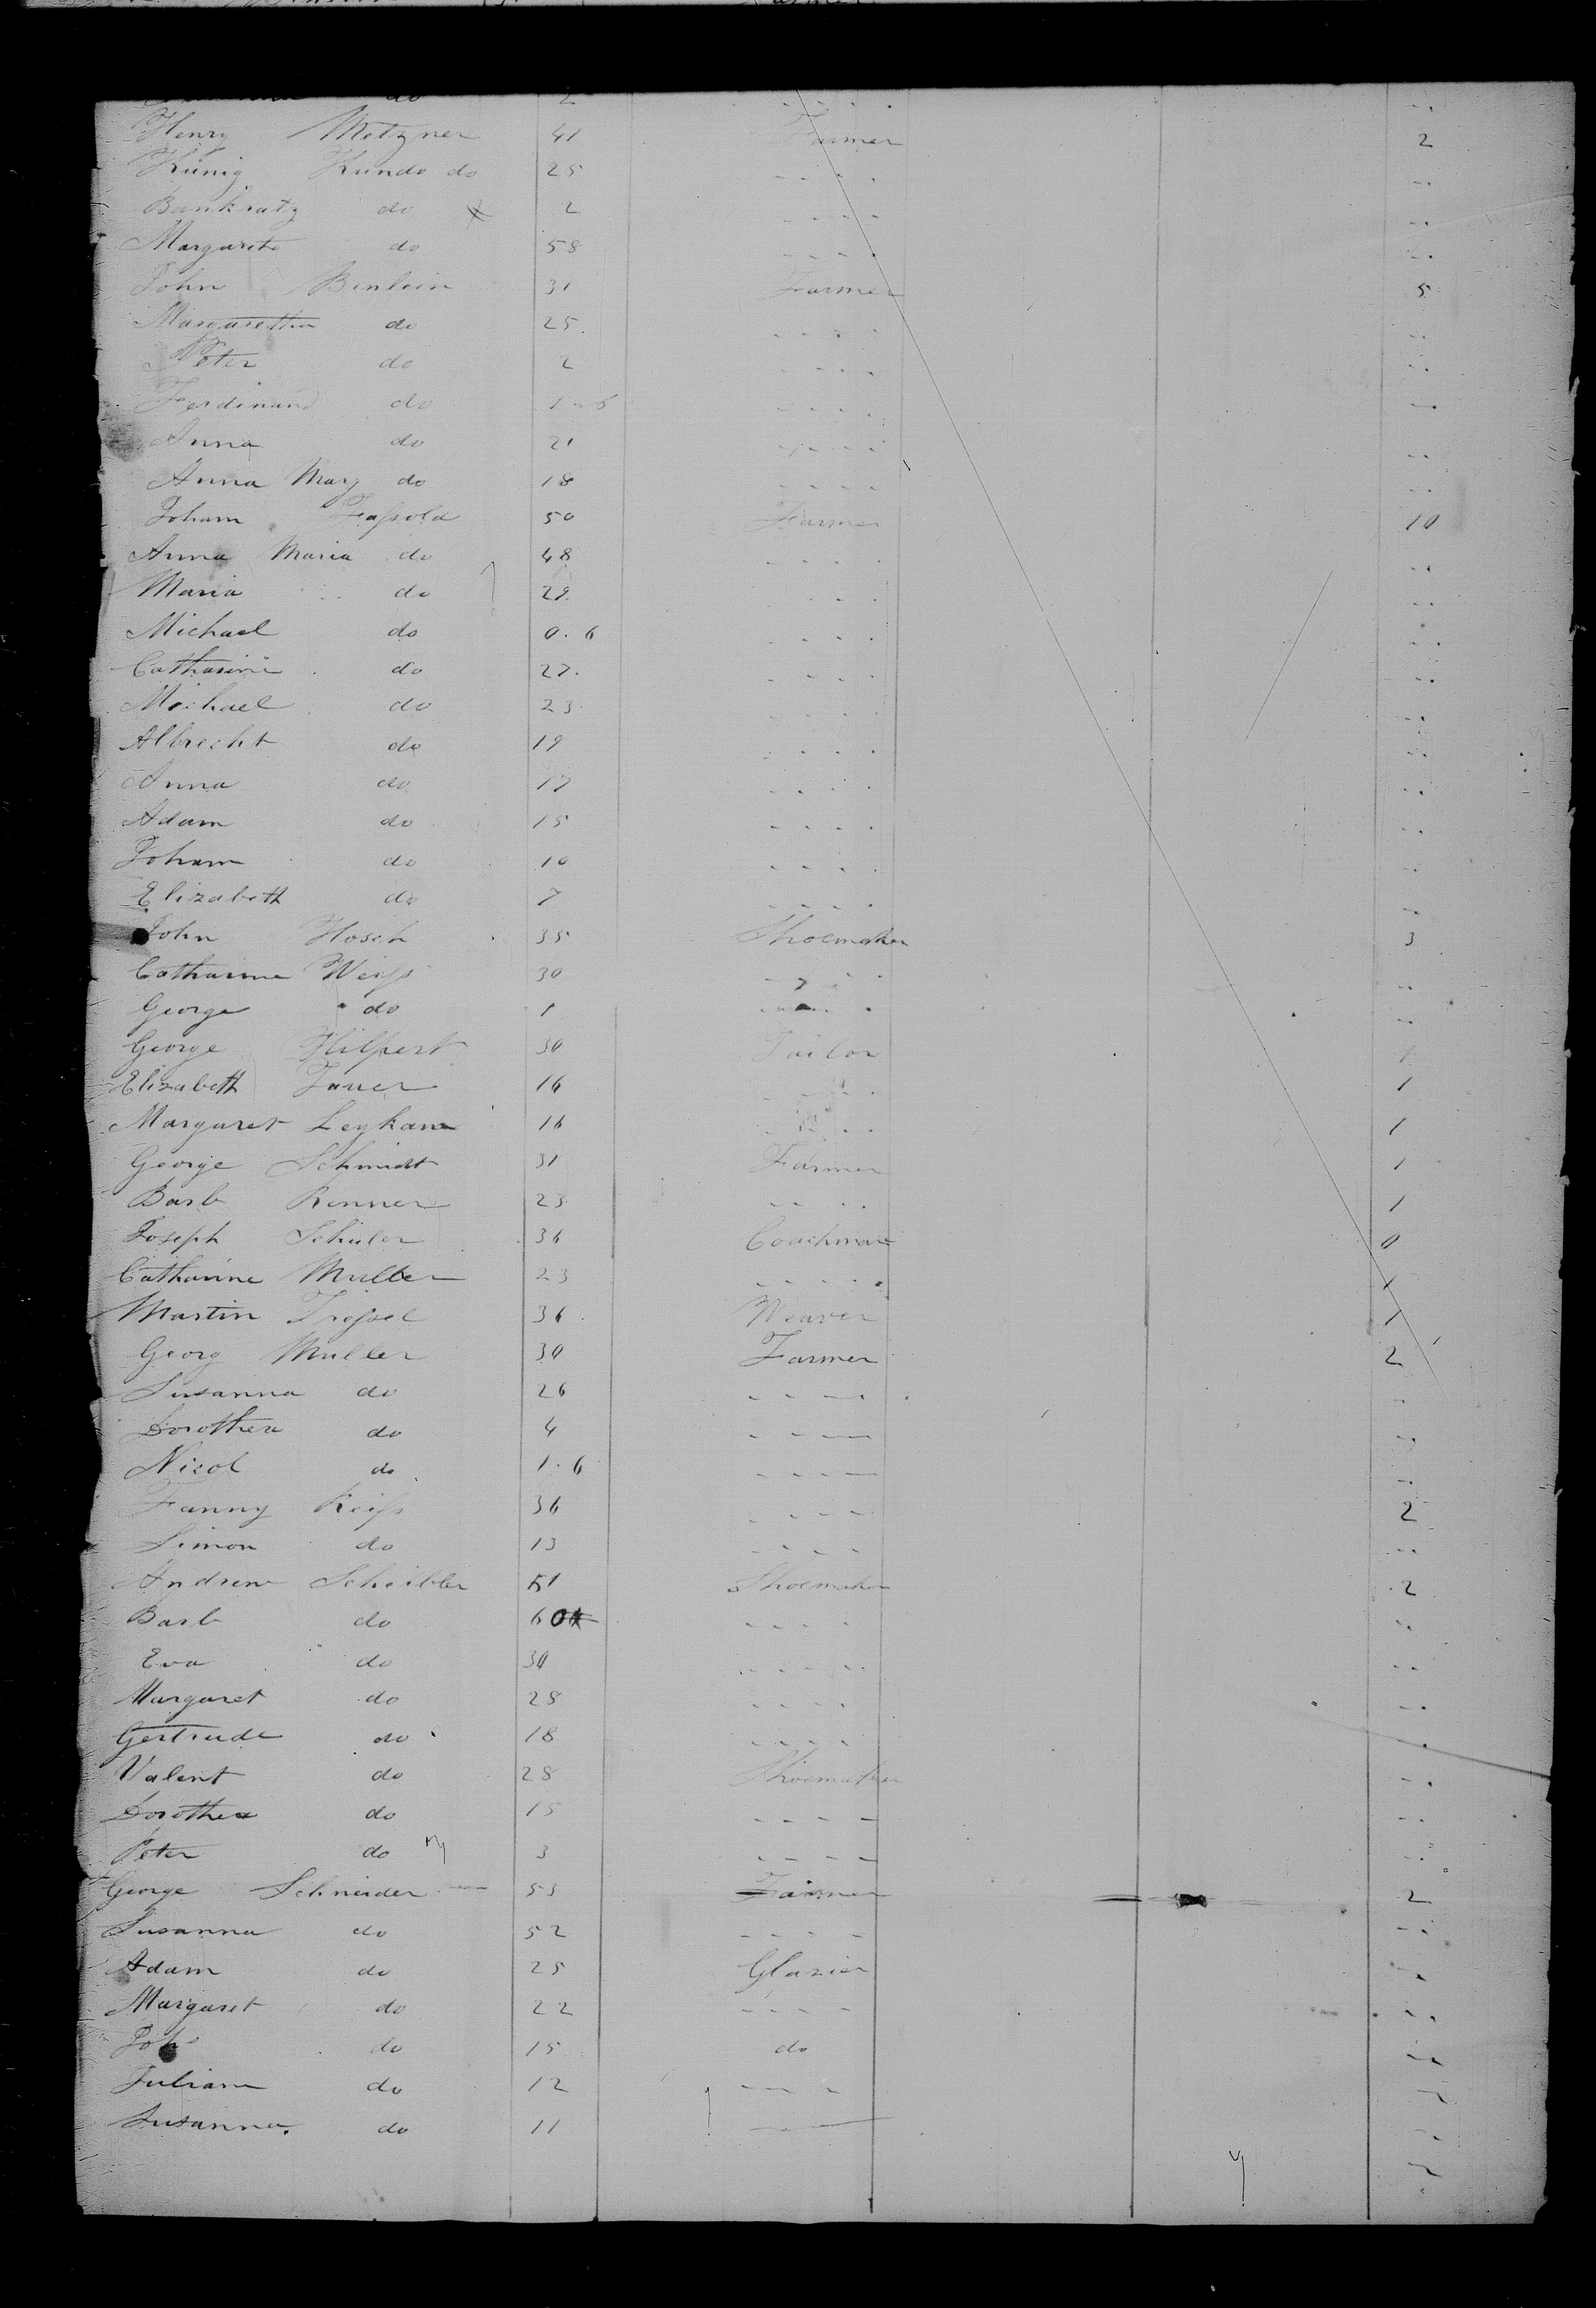 do 2
Henry Metzner 41 Farmer 2
Kunig Kundo do 25
Bankratz do 2
Margareta do 58
John Benlein 31 Farmer 5
Margaretha do 25
Peter do 2
Ferdinand do 1.6
Anna do 21
Anna Mary do 18
Joham Faßold 50 Farmer 10
Anna Maria do 48
Maria do 29
Michael do 0.6
Catharine do 27
Michael do 23
Albrecht do 19
Anna do 17
Adam do 15
Joham do 10
Elizabeth do 7
John Hosch 35 Shoemaker 3
Catharine Weiß 30
George do 1
George Hilpert 30 Tailor 1
Elizabeth Fauer 16 1
Margaret Leykam 16 1
George Schmidt 31 Farmer 1
Barb Renner 23 1
Joseph Schuler 36 Coachman 0
Catharine Muller 23 1
Martin Treßel 36 Weaver 1
Georg Muller 30 Farmer 2
Susanna do 26
Dorothea do 4
Nicol do 1.6
Fanny Reiß 36 2
Simon do 13
Andrew Scheibler 51 Shoemaker 2
Barb do 60
Eva do 30
Margaret do 28
Gertrude do 18
Valent do 28 Shoemaker
Dorothea do 15
Peter do 3
George Schneider 53 Farmer 2
Susanna do 52
Adam do 25 Glazier
Margaret do 22
Joh do 15 do
Juliam do 12
Susanna do 11